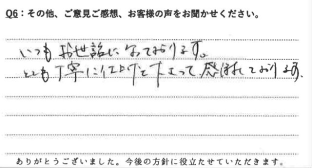 Q6：その他、ご意見ご感想、お客様の声をお聞かせください。
いつもお世話になっております。
とても丁寧に仕上げて下さって感謝しております。
ありがとうございました。今後の方針に役立たせていただきます。